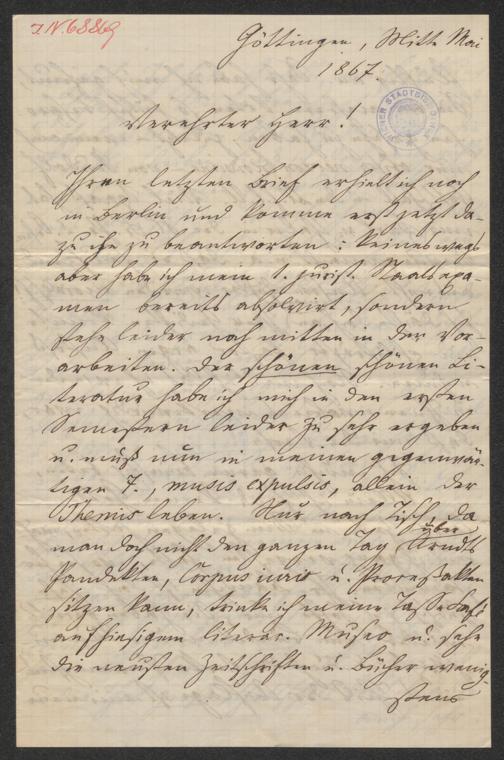 I.N. 68869
Göttingen, Mitte Mai
1867.
Verehrter Herr!
Ihren letzten Brief erhielt ich noch
in Berlin und komme erst jetzt da-
zu ihn zu beantworten: keineswegs
aber habe ich mein 1. jurist. Staatsexa-
men bereits absolvirt, sondern
stehe leider noch mitten in den Vor-
arbeiten. Der schönen schönen Li-
teratur habe ich mich in den ersten
Semestern leider zu sehr ergeben
u. muß nun in meinem gegenwär-
tigen 7., musis expulsis, allein der
Themis leben. Nur nach Tisch, da
man doch nicht den ganzen Tag über Arndts
Pandekten, Corpus iuris u. Proceßakten
sitzen kann, trinke ich meine Tasse Café
auf hiesigem literar. Museo u. sehe
die neusten Zeitschriften u. Bücher wenig-
stens